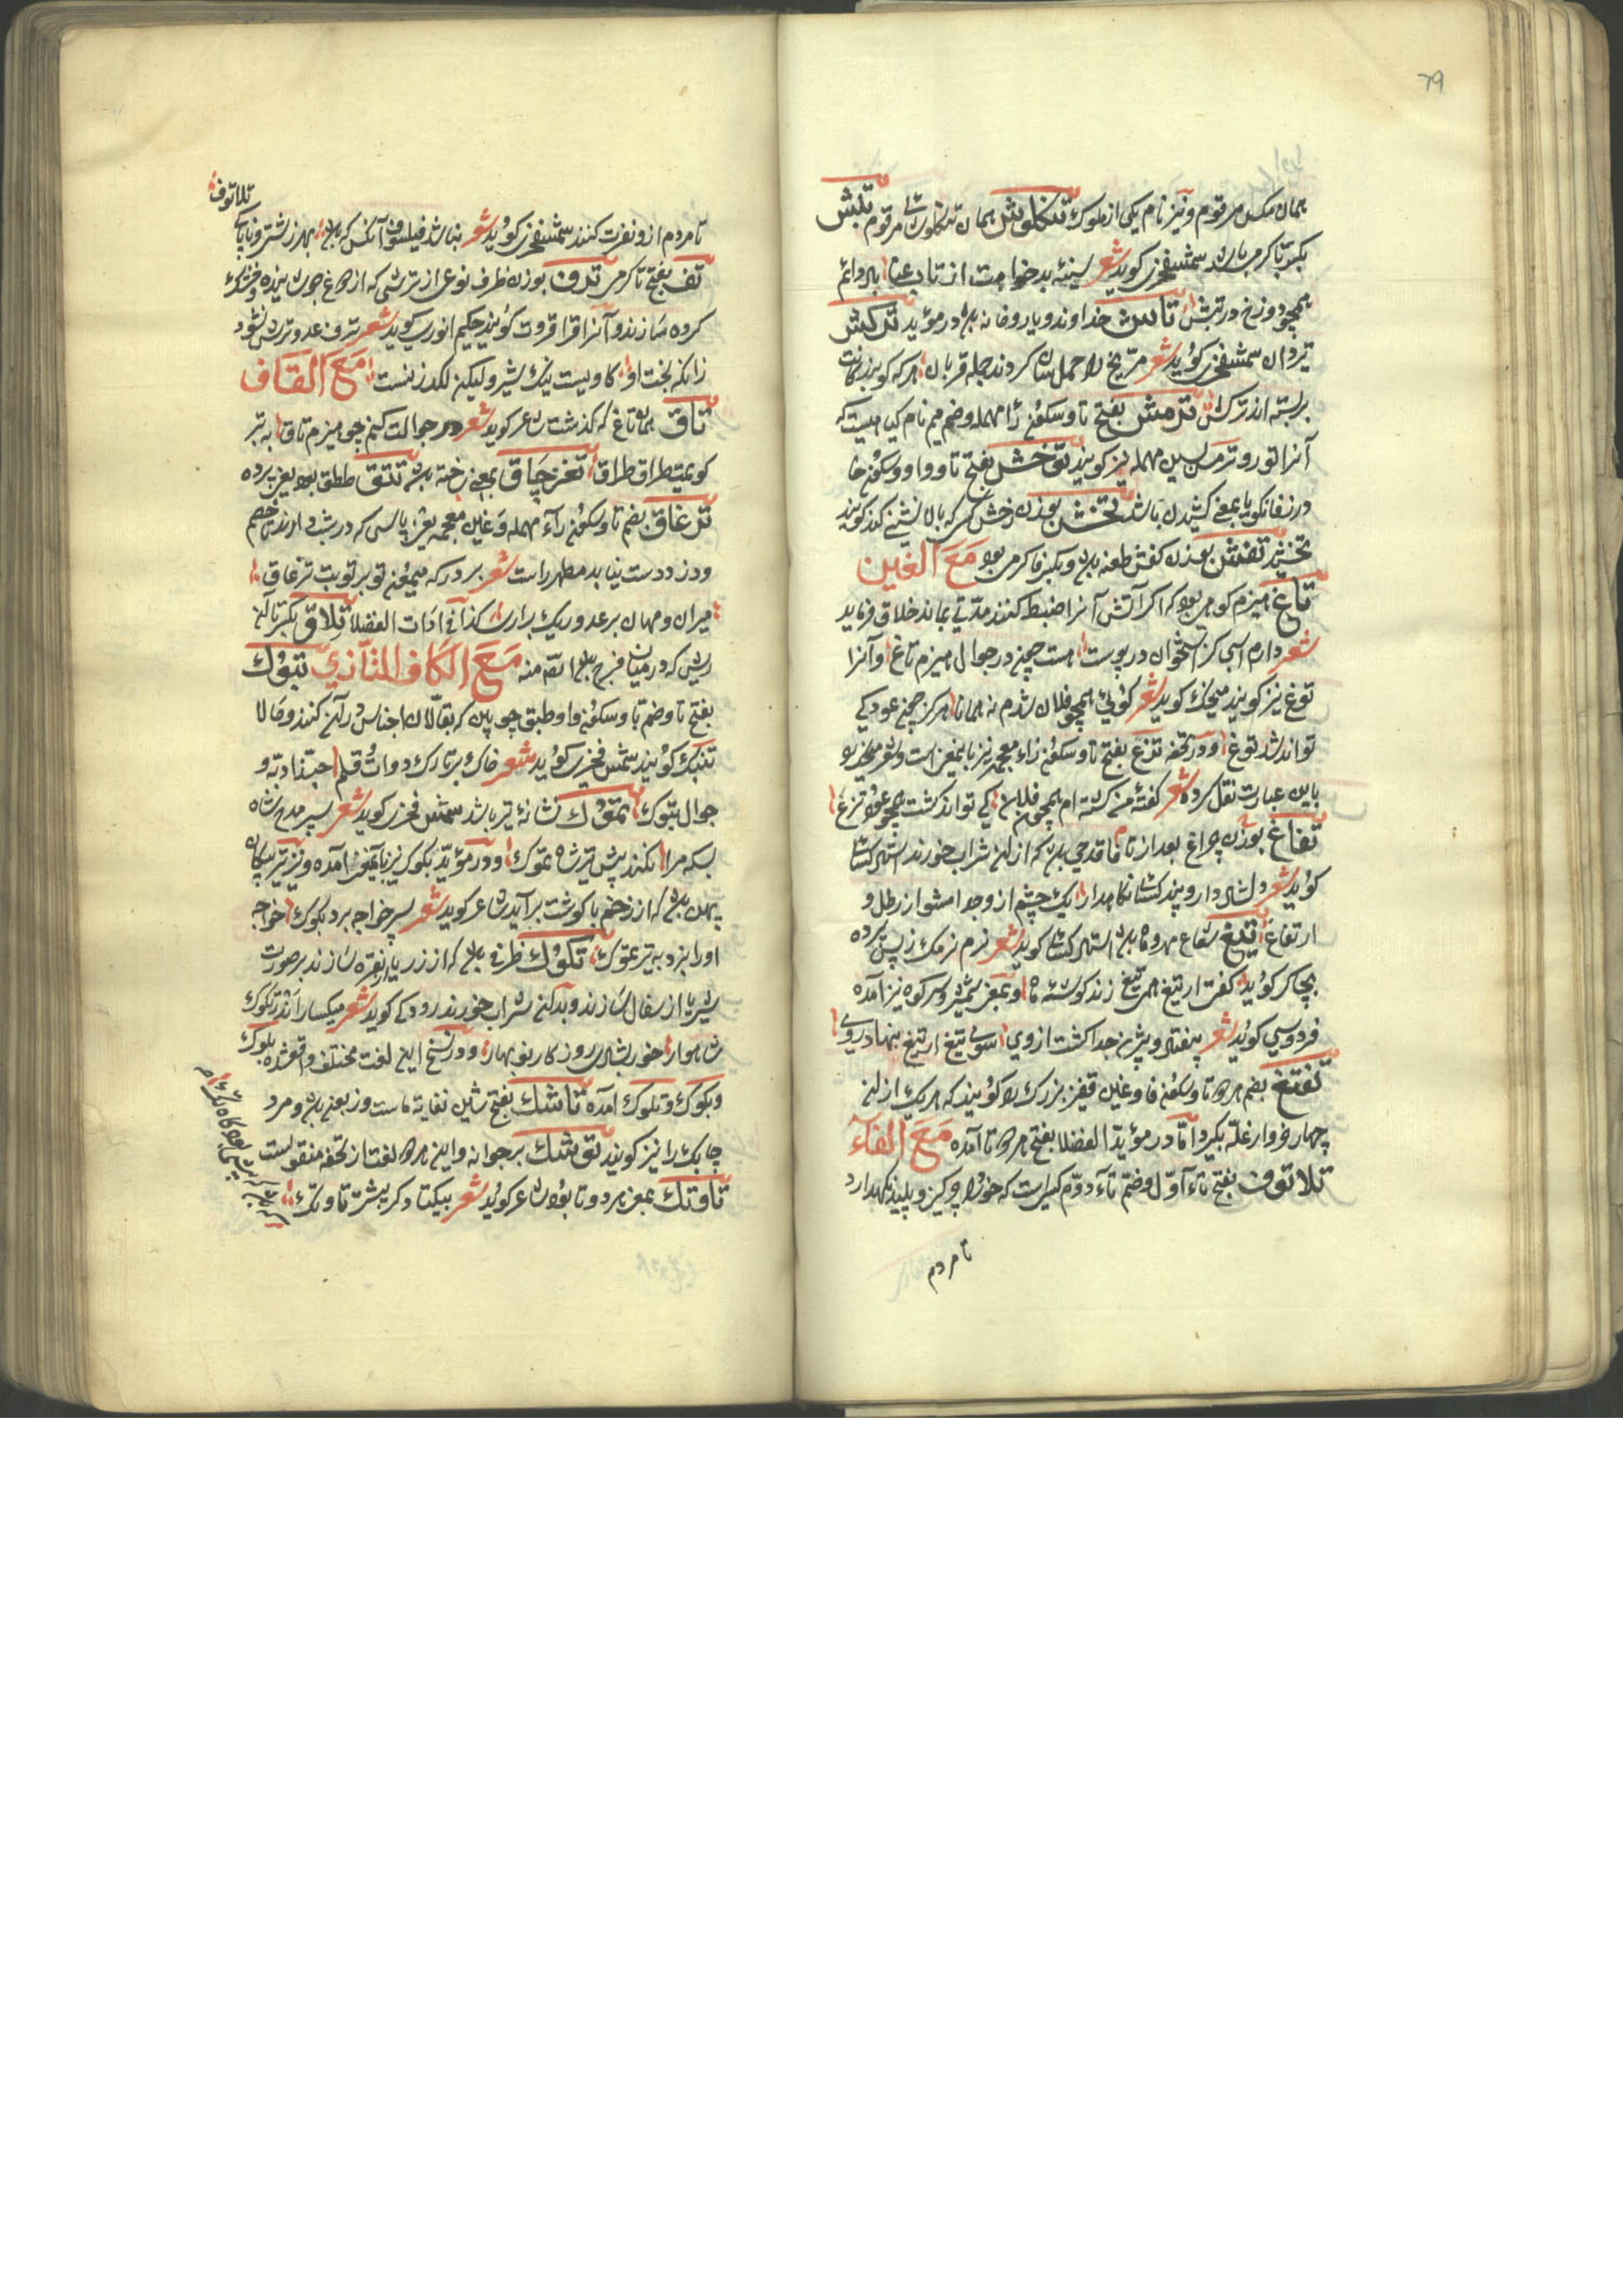 79
همان مکس مرقوم و نیز نام یکی از ملوک تنکلوش همان تنکلوشای مرقوم تبش
بکسر تا کرمی باشد شمس فخری کوید شعر سینۀ بدخواهت از تاب عنا باد دائم
همچو دوزخ در تبش تاش خداوند و یار و خانه باشد و در مؤید ترکش
تیردان شمس فخری کوید شعر مریخ را حمل کردند جمله قربان هر که کو بندکانت
بر بسته اند ترکش ترمش بفتح تا و سکون را مهمله و ضم میم نام کیاهیست که
آنرا تورو ترمس بسین مهمله نیز کویند توخش بفتح تا و واو و سکون خا
در زفانکویا بمعنی کشیدن باشد تخش بوزن رخش کسی که بالا نشینی کند کویند
تخشید تفش بوزن کفش طعنه باشد و بکسر فا کرمی بود مَعَ الغین
تاغ هیزم کوهی بود که اکر آتش آنرا ضبط کنند مدتی بماند خلاق فرماید
شعر دارم اسبی کز استخوان در پوست هست چون در جوال هیزم تاغ و آنرا
توغ نیز کویند منجیک کوید شعر کوئی همچو فلان شدم نه همانا هرکز چون عود کی
تواند شد توغ و در تحفه تزغ بفتح تا و سکون زاء معجمه نیز باینمعنی است و شعر منجیک
باین عبارت نقل کرده شعر کفتۀ من کشته ام همچو فلان کی تواند کشت همچو عود تزغ
تفاغ بوزن چراغ بعد از تا فا قدحی باشد که از آن شراب خورند استاد کسائی
کوید شعر دل شاد دار و پند کسائی نکاهدار یک چشم از و جدا مشو از رطل و
ارتفاغ تیغ شعاع مهر و ماه باشد استاد کسائی کوید شعر نرم نرمک ز پس پرده
بچاکر کوید کفت ار تیغ همی تیغ زند کوشۀ ماه و بمعنی شمشیر و سر کوه نیز آمده
فردوسی کوید شعر بیفتاد و بیژن جدا کشت ازوی سوی تیغ از تیغ بنهاد روی
تفتغ بضم هر دو تا و سکون فا و غین قفیز بزرک را کویند که هر یک از آن
چهار خروار غله بکیرد اما در مؤید الفضلا بفتح هر دو تا آمده مَعَ الفآء
تلاتوف بفتح تاء اول و ضم تاء دوم کسی است که خود را چرکین و پلید نکهدارد
تا مردم
تلاتوف
تا مردم ازو نفرت کنند شمس فخری کوید شعر نباشد فیلسوف آنکس که باشد بهر زشت و ناپاک
تف بفتح تا کرمی ترف بوزن ظرف نوعی از ترشی که از دوغ جوشانیده و خشک
کرده سازند و آنرا قراقروت کویند حکیم انوری کوید شعر ترف عدو ترش نشود
زانکه بخت او کاویست نیک شیر و لیکن لکدزنست مَعَ القَاف
تاق همان تاغ که کذشت شاعر کوید شعر در جوالت کنم چو هیزم تاق به تبر
کوبمت طراق طراق تغز چاق بمعنی رخنه باشد تتق ططق بود یعنی پرده
ترغاق بضم تا و سکون راء مهمله و غین معجمه یعنی پاسی که در شب دارند تا خصم
و دزد دست نیابد مظهر راست شعر بر در که میمون تو بر نوبت ترغاق
میران و مهان بر عدو ریک براری کذا فی ادات الفضلا تلاق بکسر تا آن
ریش که در میان فرج بود اقه منه مَعَ الکاف التازی تبوک
بفتح تا و ضم با و سکون واو طبق چوبین که بقالان اجناس در آن کنند و حالا
تنبک کویند شمس فخری کوید شعر خاک بر تارک دوات و قلم حبذا دبه و
جوال تبوک تموک نشانۀ تیر باشد شمس فخری کوید شعر سپر مدح شاه
بسکه مرا نکند پیش تیر شه تموک و در مؤید بکوک نیز باینمعنی آمده و نیز تیر پیکان
پهن باشد که از زخم با کوشت برآید شاعر کوید شعر پسر خواجه برد بکوک خواجه
او را بزد به تیر تموک تکوک ظرفی باشد که از زر یا نقره سازند بر صورت
شیر یا از سفال سازند و بدان شراب خورند رودکی کوید شعر میکسار اندر تکوک
شاهوار خور بشادی روز کار نوبهار و در نسخ این لغت مختلف واقع شده بلوک
و بکوک و تلوک آمده تاشک بفتح شین نفایۀ ماست و زبعنی باشد و مرد
چابک را نیز کویند توشک برجوانه و این هر دو لغت از تحفه منقولست
تاوتک بمعنی هر دو تا بود شاعر کوید شعر بیکتا و کر پشت تا و تک